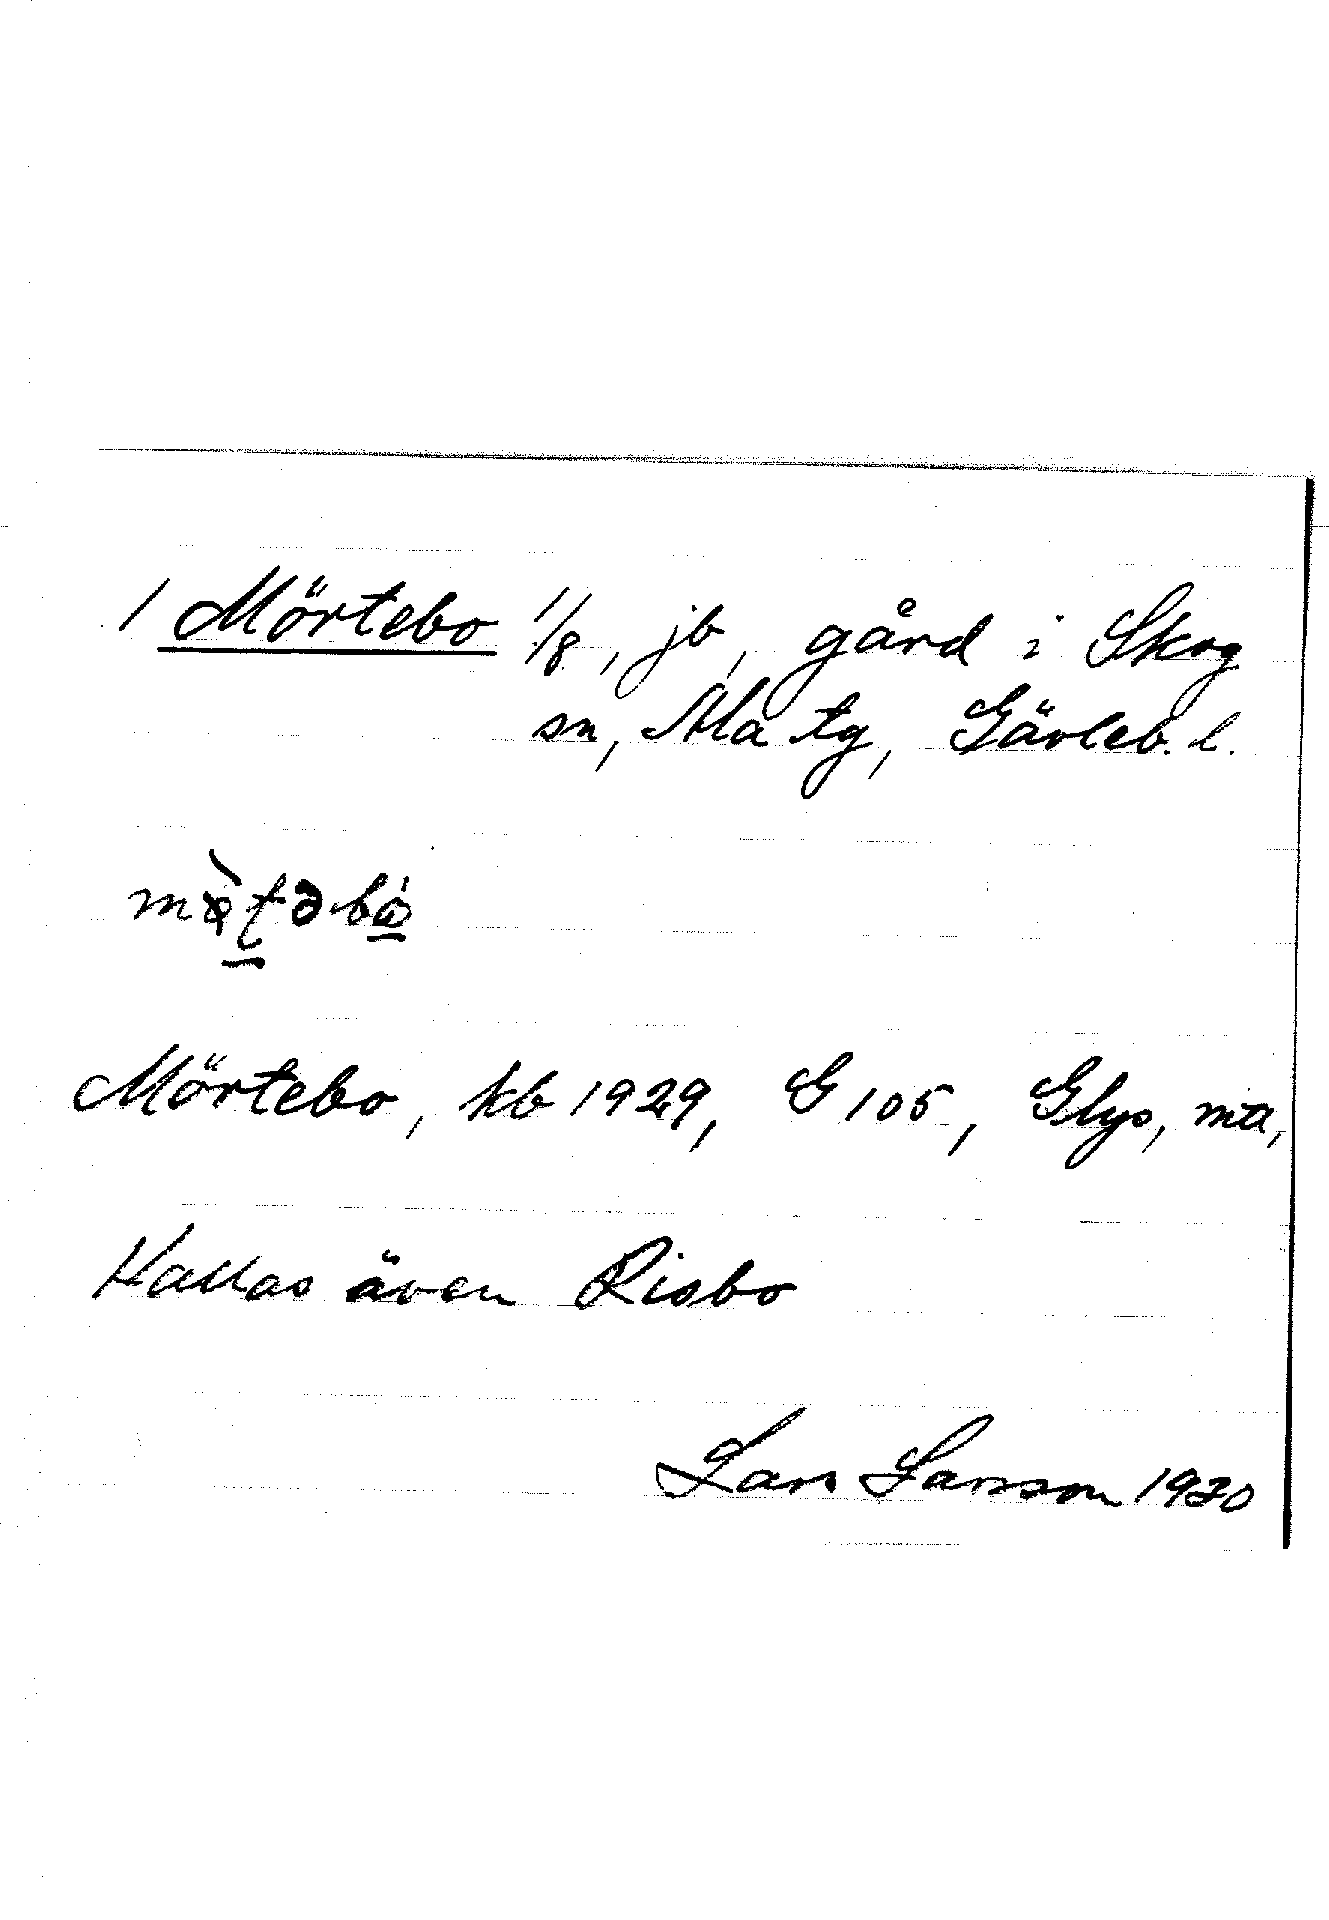 1 Mörtebo 1/8, jb, gård i Skog
sn, Ala tg, Gävleb. l.
Mörtebo, kb 1929, G 105, Glys, ma,
Kallas även Risbo
Lars Larsson 1930